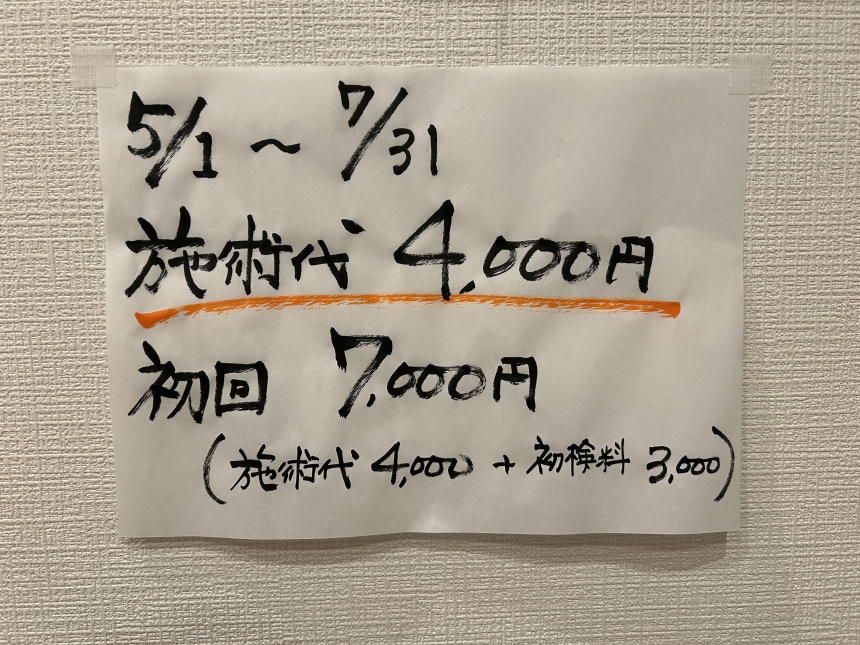 5/1 ~ 7/31
施術代 4,000円
初回 7,000円
(施術代 4,000 + 初検料 3,000)